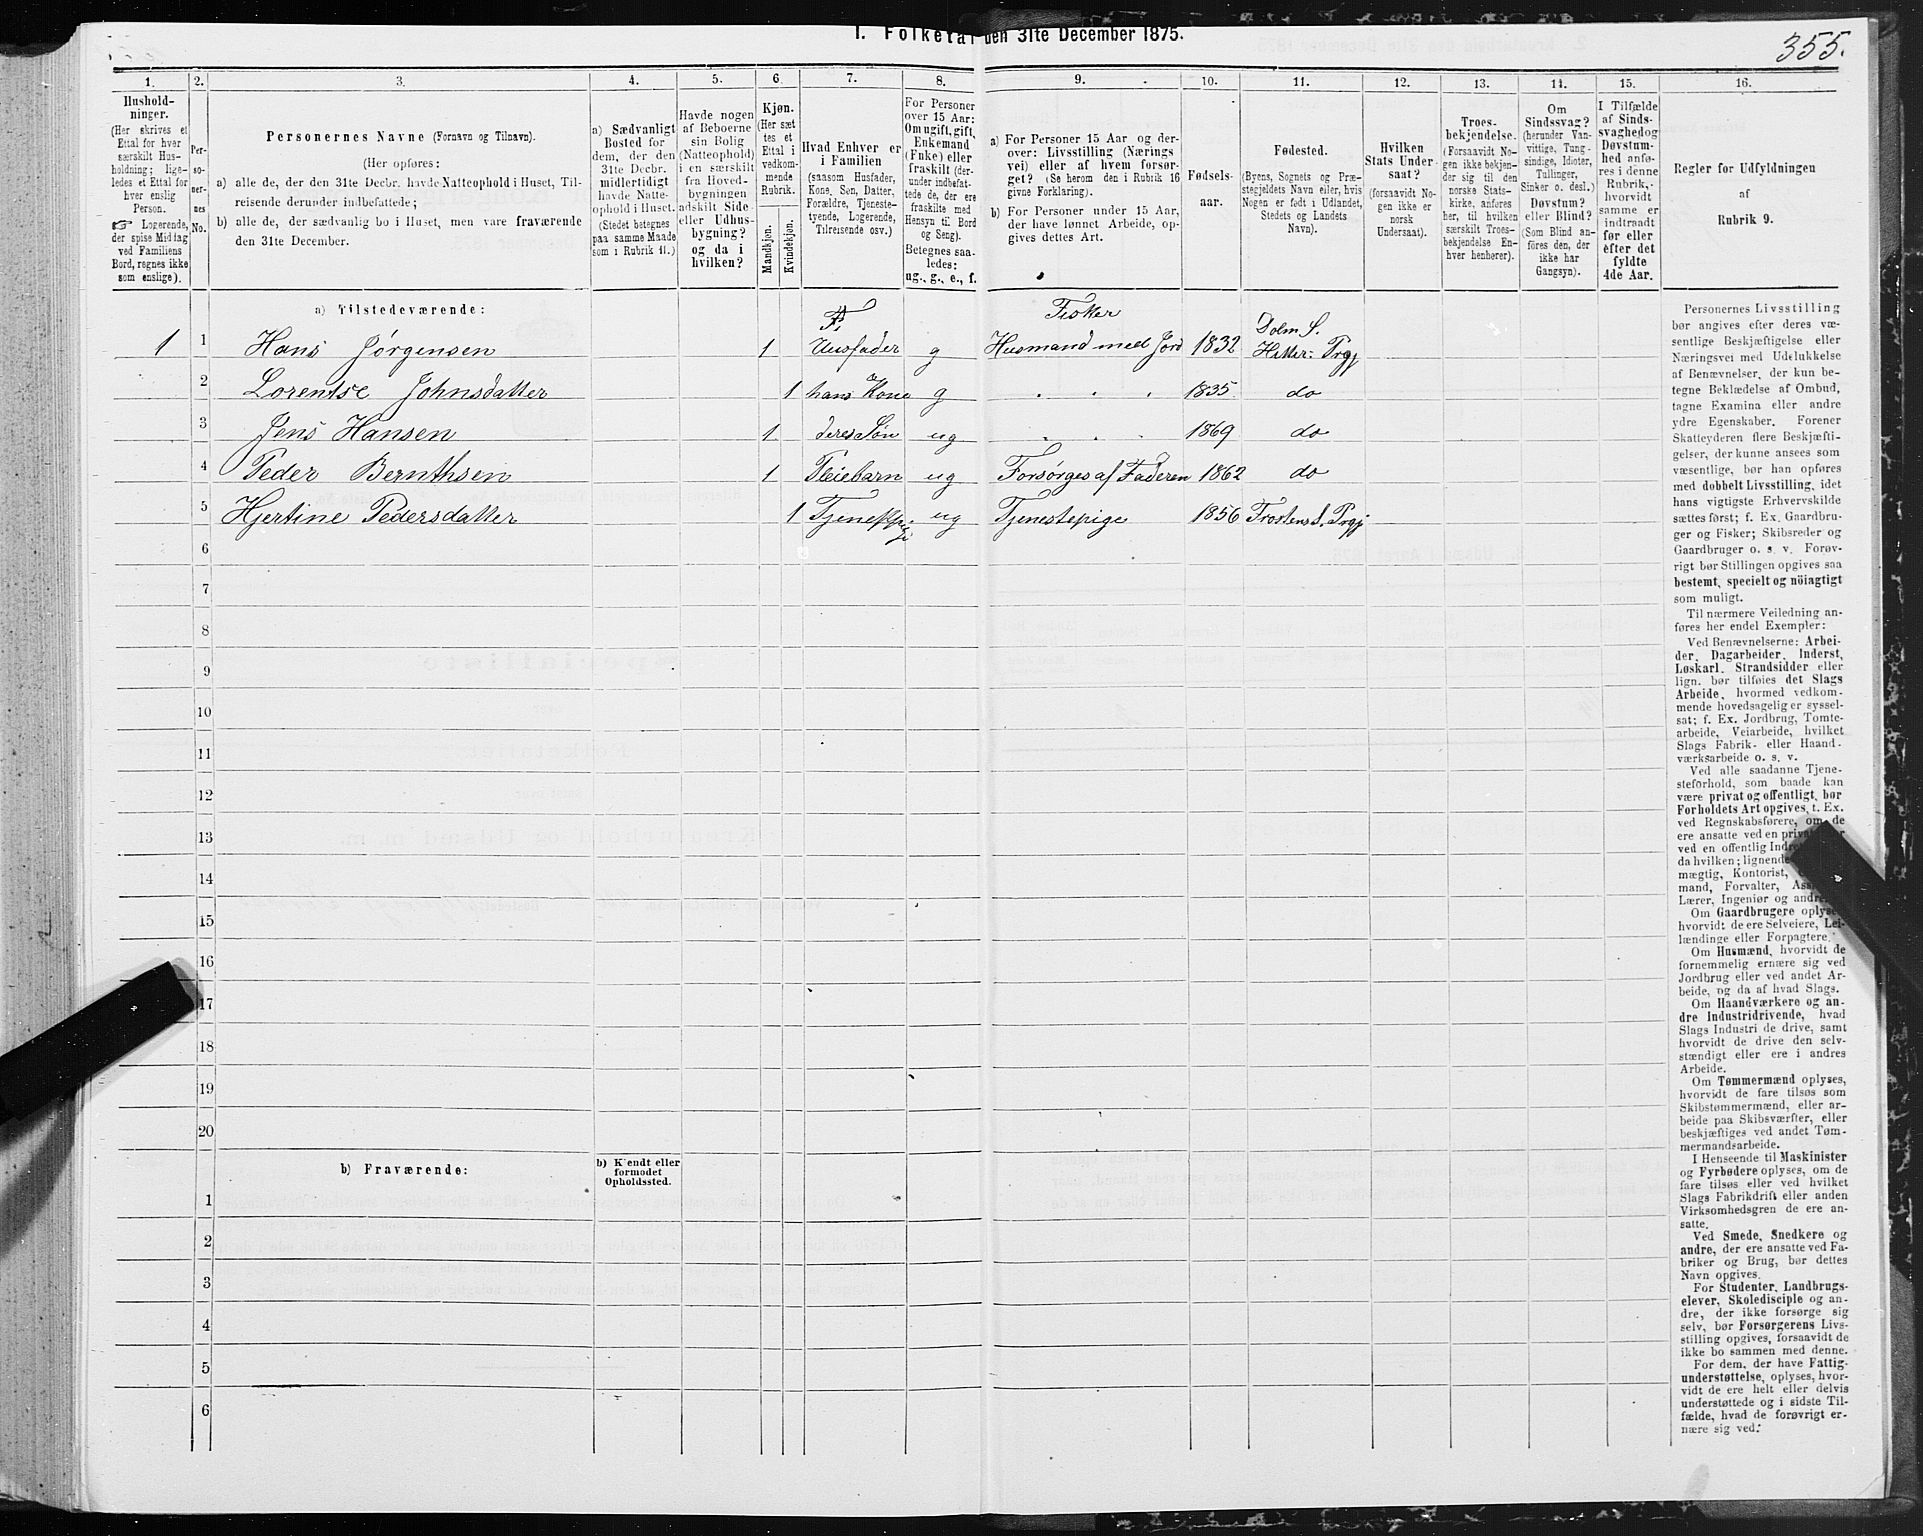 I. Folketal den 31te December 1875.
355.
1.
Hushold-
ninger.
(Her skrives et
Ettal for hver
særskilt Hus-
holdning; lige-
ledes et Ettal for
hver enslig
Person.
☞ Logerende,
der spise Middag
ved Familiens
Bord, regnes ikke
som enslige).
2.
Per-
so-
ner-
nes
No.
3.
Personernes Navne (Fornavn og Tilnavn).
(Her opføres:
a) alle de, der den 31te Decbr. havde Natteophold i Huset, Til-
reisende derunder indbefattede;
b) alle de, der sædvanlig bo i Huset, men vare fraværende
den 31te December.
4.
a) Sædvanligt
Bosted for
dem, der den
31te Decbr.
midlertidigt
havde Natte-
ophold i Huset.
(Stedet betegnes
paa samme Maade
som i Rubrik 11.)
5.
Havde nogen
af Beboerne
sin Bolig
(Natteophold)
i en særskilt
fra Hoved-
bygningen
adskilt Side-
eller Udhus-
bygning?
og da i
hvilken?
6.
Kjøn.
(Her sæt
tes et
Ettal i
vedkom-
mende
Rubrik.
Mandkjøn.
Kvindekjøn.
7.
Hvad Enhver er
i Familien
(saasom Husfader,
Kone, Søn, Datter,
Forældre, Tjeneste-
tyende, Logerende,
Tilreisende osv.)
8.
For Personer
over 15 Aar:
Om ugift, gift,
Enkemand
(Enke) eller
fraskilt (der-
under indbefat-
tede de, der ere
fraskilte med
Hensyn til Bord
og Seng).
Betegnes saa-
ledes:
ug., g., e., f.
9.
a) For Personer 15 Aar og der-
over: Livsstilling (Nærings
vei) eller af hvem forsør-
get? (Se herom den i Rubrik 16
givne Forklaring).
b) For Personer under 15 Aar,
der have lønnet Arbeide, op-
gives dettes Art.
10.
Fødsels-
aar.
11.
Fødested.
(Byens, Sognets og Præ-
stegjeldets Navn eller, hvis
Nogen er født i Udlandet,
Stedets og Landets
Navn).
12.
Hvilken
Stats Under-
saat?
(forsaavidt No-
gen ikke er
norsk
Undersaat).
13.
Troes-
bekjendelse.
(Forsaavidt No-
gen ikke bekjen-
der sig til den
norske Stats-
kirke, anføres
her, til hvilken
særskilt Troes-
bekjendelse En-
hver henhører).
14.
Om
Sindssvag?
(herunder Van-
vittige, Tung-
sindige, Idioter,
Tullinger,
Sinker o. desl.)
Døvstum?
eller Blind?
(Som Blind an-
føres den, der
ikke har
Gangsyn).
15.
I Tilfælde
af Sinds-
svaghed og
Døvstum-
hed anfø-
res i denne
Rubrik,
hvorvidt
samme er
indtraadt
før eller
efter det
fyldte
4de Aar.
16.
Regler for Udfyldningen
af
Rubrik 9.
a) Tilstedeværende:
1 1 Hans Jørgensen 1 F. Husfader g Fisker Husmand med Jord 1832 Dolm S. Hitter: Prgj
2 Lorentse Johnsdatter 1 hans Kone g " " " 1835 do
3 Jens Hansen 1 deres Søn ug " " " 1869 do
4 Peder Bernthsen 1 Pleiebarn ug Forsørges af Faderen 1862 do
5 Hjertine Pedersdatter 1 Tjenestpige ug Tjenestepige 1856 Frostens S. Prgj
6
7
8
9
10
11
12
13
14
15
16
17
18
19
20
b) Fraværende:
b) Kjendt eller
formodet
Opholdssted.
1
2
3
4
5
6
Personernes Livsstilling
bør angives efter deres væ-
sentlige Beskjæftigelse eller
Næringsvei med Udelukkelse
af Benævnelser, der kun be-
tegne Beklædelse af Ombud,
tagne Examina eller andre
ydre Egenskaber. Forener
Skatteyderen flere Beskjæfti-
gelser, der kunne ansees som
væsentlige, bør han opføres
med dobbelt Livsstilling, idet
hans vigtigste Erhvervskilde
sættes først; f. Ex. Gaardbru-
ger og Fisker; Skibsreder og
Gaardbruger o. s. v. Forøv-
rigt bør Stillingen opgives saa
bestemt, specielt og nöiagtigt
som muligt.
Til nærmere Veiledning an-
føres her endel Exempler:
Ved Benævnelserne: Arbei-
der, Dagarbeider, Inderst,
Løskarl, Strandsidder eller
lign. bør tilføies det Slags
Arbeide, hvormed vedkom-
mende hovedsagelig er syssel-
sat; f. Ex. Jordbrug, Tomte-
arbeide, Veiarbeide, hvilket
Slags Fabrik- eller Haand-
værksarbeide o. s. v.
Ved alle saadanne Tjene-
steforhold, som baade kan
være privat og offentligt, bør
Forholdets Art opgives, t. Ex.
ved Regnskabsførere, om de
ere ansatte ved en
ved en offentlig
da hvilken; lignende
mægtig, Kontorist,
mand, Forvalter,
Lærer, Ingeniør og
Om Gaardbrugere oplyses,
hvorvidt de ere Selveiere, Lei-
lændinge eller Forpagtere.
Om Husmænd, hvorvidt de
fornemmelig ernære sig ved
Jordbrug eller ved andet Ar-
beide, og da af hvad Slags.
Om Haandværkere og an-
dre Industridrivende, hvad
Slags Industri de drive, samt
hvorvidt de drive den selv-
stændigt eller ere i andres
Arbeide.
Om Tømmermænd oplyses,
hvorvidt de fare tilsøs som
Skibstømmermænd, eller ar-
beide paa Skibsværfter, eller
beskjæftiges ved andet Tøm-
mermandsarbeide.
I Henseende til Maskinister
og Fyrbødere oplyses, om de
fare tilsøs eller ved hvilket
Slags Fabrikdrift eller anden
Virksomhedsgren de ere an-
satte.
Ved Smede, Snedkere og
andre, der ere ansatte ved Fa-
briker og Brug, bør dettes
Navn opgives.
For Studenter, Landbrugs-
elever, Skoledisciple og an-
dre, der ikke forsørge sig
selv, bør Forsørgerens Livs-
stilling opgives, forsaavidt de
ikke bo sammen med denne.
For dem, der have Fattig-
understøttelse, oplyses, hvor-
vidt de ere helt eller delvis
understøttede og i sidste Til-
fælde, hvad de forøvrigt er-
nære sig ved.